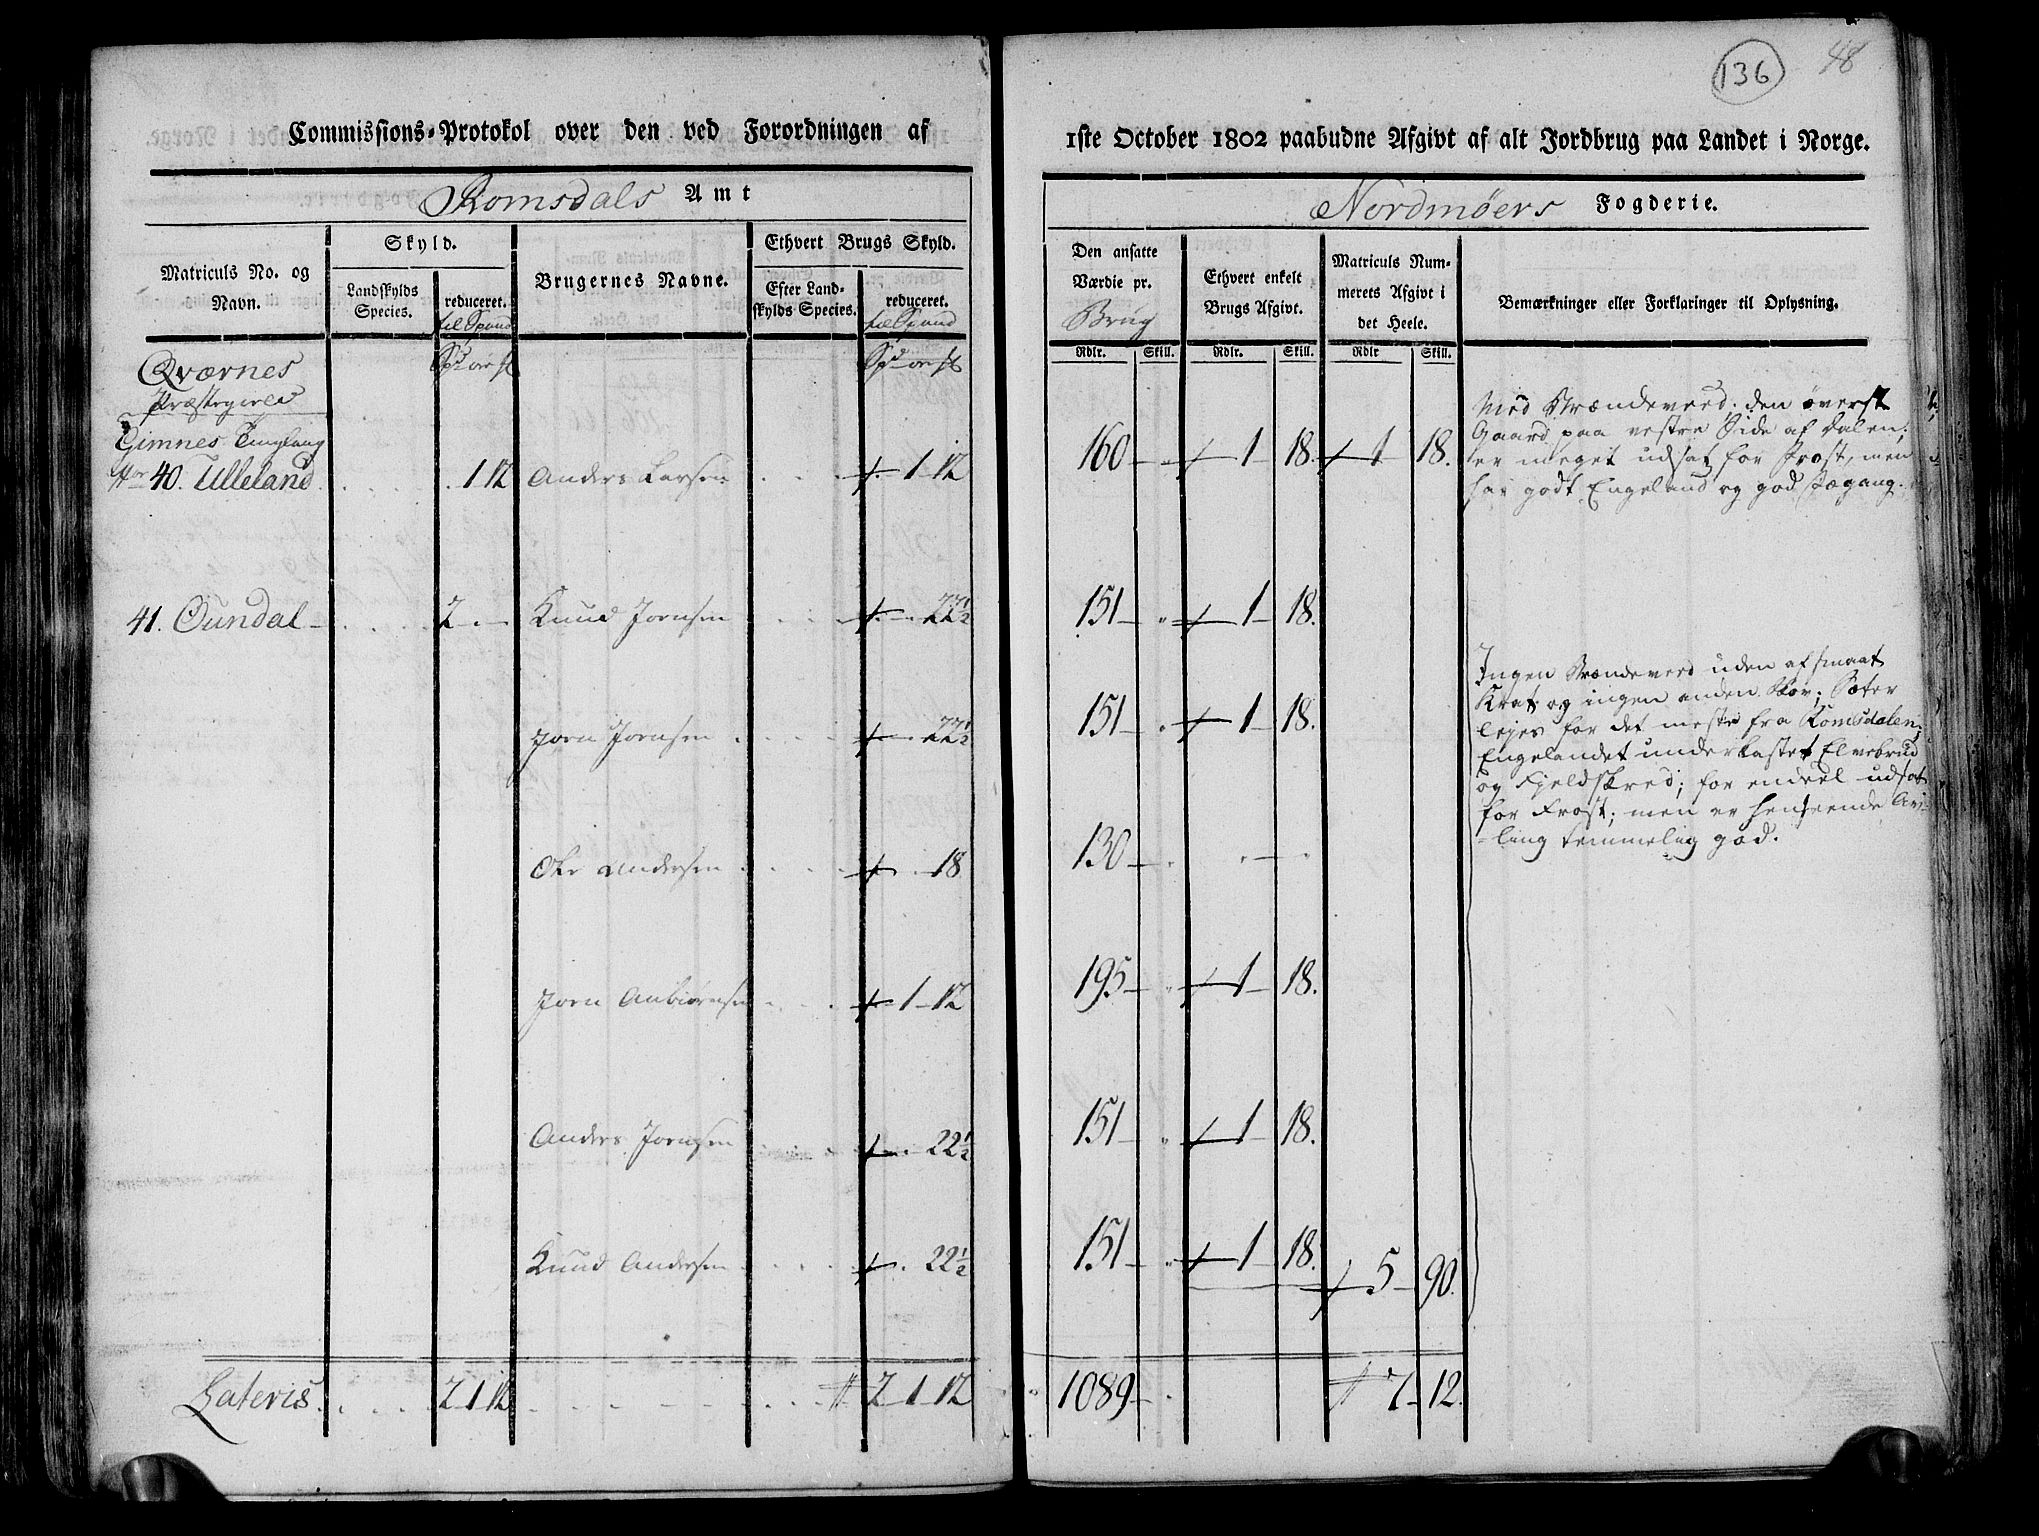 136
48
Commissions-Protokol over den ved Forordningen af 1ste October 1802 paabudne Afgivt af alt Jordbrug paa Landet i Norge.
Romsdals Amt
Nordmøers Fogderie.
Matriculs No. og Navn.
Skyld.
Landskylds Species.
reduceret. til Spand
Brugernes Navne.
Ethvert Brugs Skyld.
Efter Landskylds Species.
reduceret. til Spand
Den ansatte Værdie pr. Brug
Ethvert enkelt Brugs Afgivt.
Matriculs Nummerets Afgivt i det Heele.
Bemærkninger eller Forklaringer til Oplysning.
Rdlr. Skill. Rdlr. Skill. Rdlr Skill.
Qværnes
Præstegield
Gimnes Tinglaug
40. Ulleland 1 12 Anders Larsen 1 12 160 1 18. 1 18.
Med Brændeved. den øverst
Gaard paa vestre Side af dalen;
er meget udsat for Frost, men
har godt Engeland og god
41. Oundal 2 Knud Jornsen 22½ 151 1 18.
Jorn Jornsen 22½ 151 1 18.
Ole Andersen 18 130
Jorn Anbiørnsen 1 12 195 1 18.
Anders Jornsen 22½ 151 1 18.
Knud Andersen 22½ 151 1 18. 5 90.
Ingen Brændeved uden af smaat
Krat og ingen anden Skov; Sæter
lejes for det meste fra Romsdalen;
Engelandet underkastet Elvebrud
og Fjeldskred; for endeel udsat
for Frost; men er henseende Av-
-ling temmelig god.
Lateris 2 1 12 2 1 12 1089 7 12.